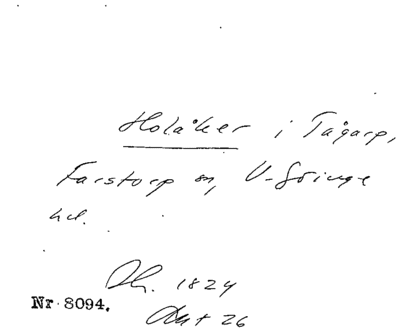 Holåker i Tågarp,
Farstorp sn, V-Göinge
hd.
Dh. 1824
Nr 8094.
Akt 26